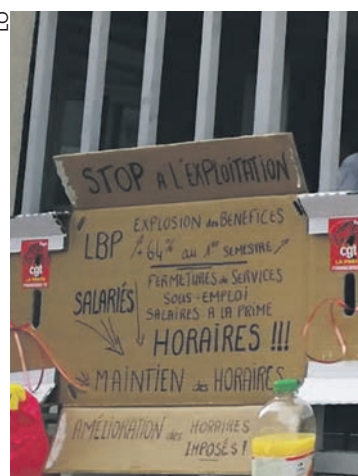 LO
STOP A L'EXPLOITATION
EXPLOSION des BENEFICES
LBP + 64% au 1er SEMESTRE
FERMETURES de SERVICES
SALARIÉS SOUS-EMPLOI
SALAIRES A LA PRIME
HORAIRES !!!
MAINTIEN des HORAIRES
AMÉLIORATION des HORAIRES
IMPOSÉS !
cgt
cgt